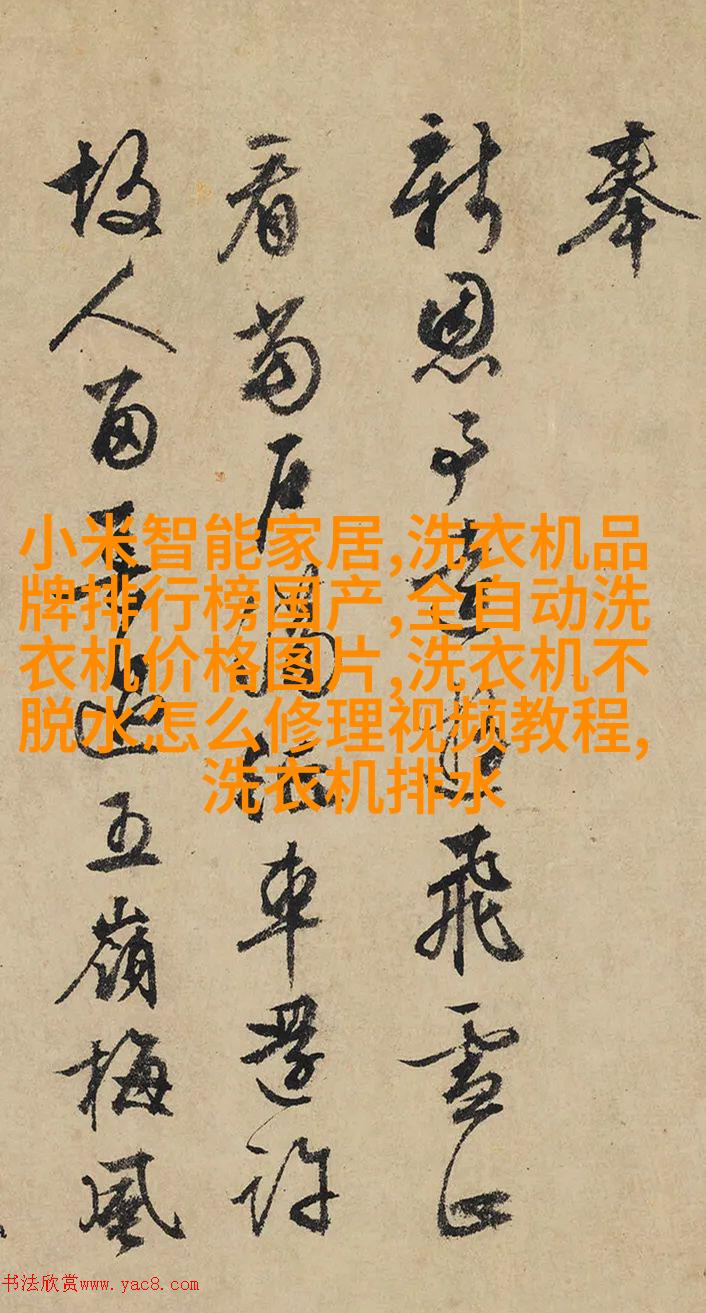 奉
新恩予飛雪正
看車還許
故人五嶺梅風
小米智能家居,洗衣机品
牌排行榜国产,全自动洗
衣机价格图片,洗衣机不
脱水怎么修理视频教程,
洗衣机排水
书法欣赏www.yac8.com